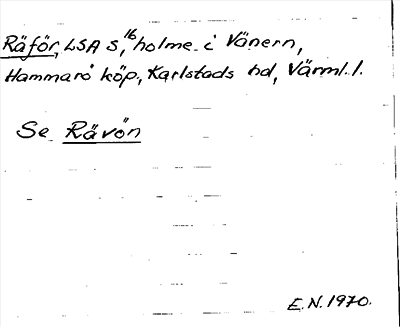 Räför, LSA S, 16 holme i Vänern,
Hammarö köp, Karlstads hd, Värml. l.
Se Rävön
E.N. 1970.